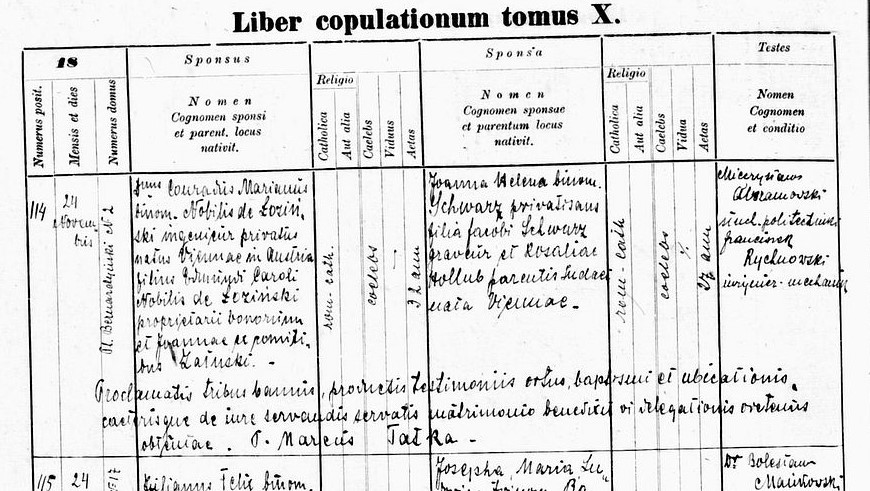 Liber copulationum tomus X.
18
Numerus posit.
Mensis et dies
Numerus domus
Sponsus
Nomen
Cognomen sponsi
et parent. locus
nativit.
Religio
Catholica
Aut alia
Caelebs
Viduus
Aetas
Sponsa
Nomen
Cognomen sponsae
et parentum locus
nativit.
Religio
Catholica
Aut alia
Caelebs
Vidua
Aetas
Testes
Nomen
Cognomen
et conditio
114
24
Novem
bris
Pl. Bernardyński N 2
Dnus Conradus Marianus
binom. Nobilis de Lozin-
ski ingenieur privatus
natus Viennae in Austria
filius Edmundi Caroli
Nobilis de Lozinski
proprietarii bonorum
et Joannae de comiti-
bus Załuski. -
rom-cath.
coelebs
32 ann
Joanna Helena binom.
Schwarz privatisans
filia Jacobi Schwarz
graveur et Rosaliae
Hollub parentis Judaei
nata Viennae. -
rom-cath
coelebs
27 ann
Mieczysław
Abramowski
stud. politechniki
Franciszek
Rychnowski
inżynier-mechanik
Proclamatis tribus bannis, productis testimoniis ortus, baptismi et ubicationis,
caeterisque de iure servandis servatis matrimonio benedixit vi delegationis oretenus
obtentae. P. Marcus Tatka -
115
24
Julianus Felix binom.
Josepha Maria Lu-
Dr Bolesław
Mańkowski